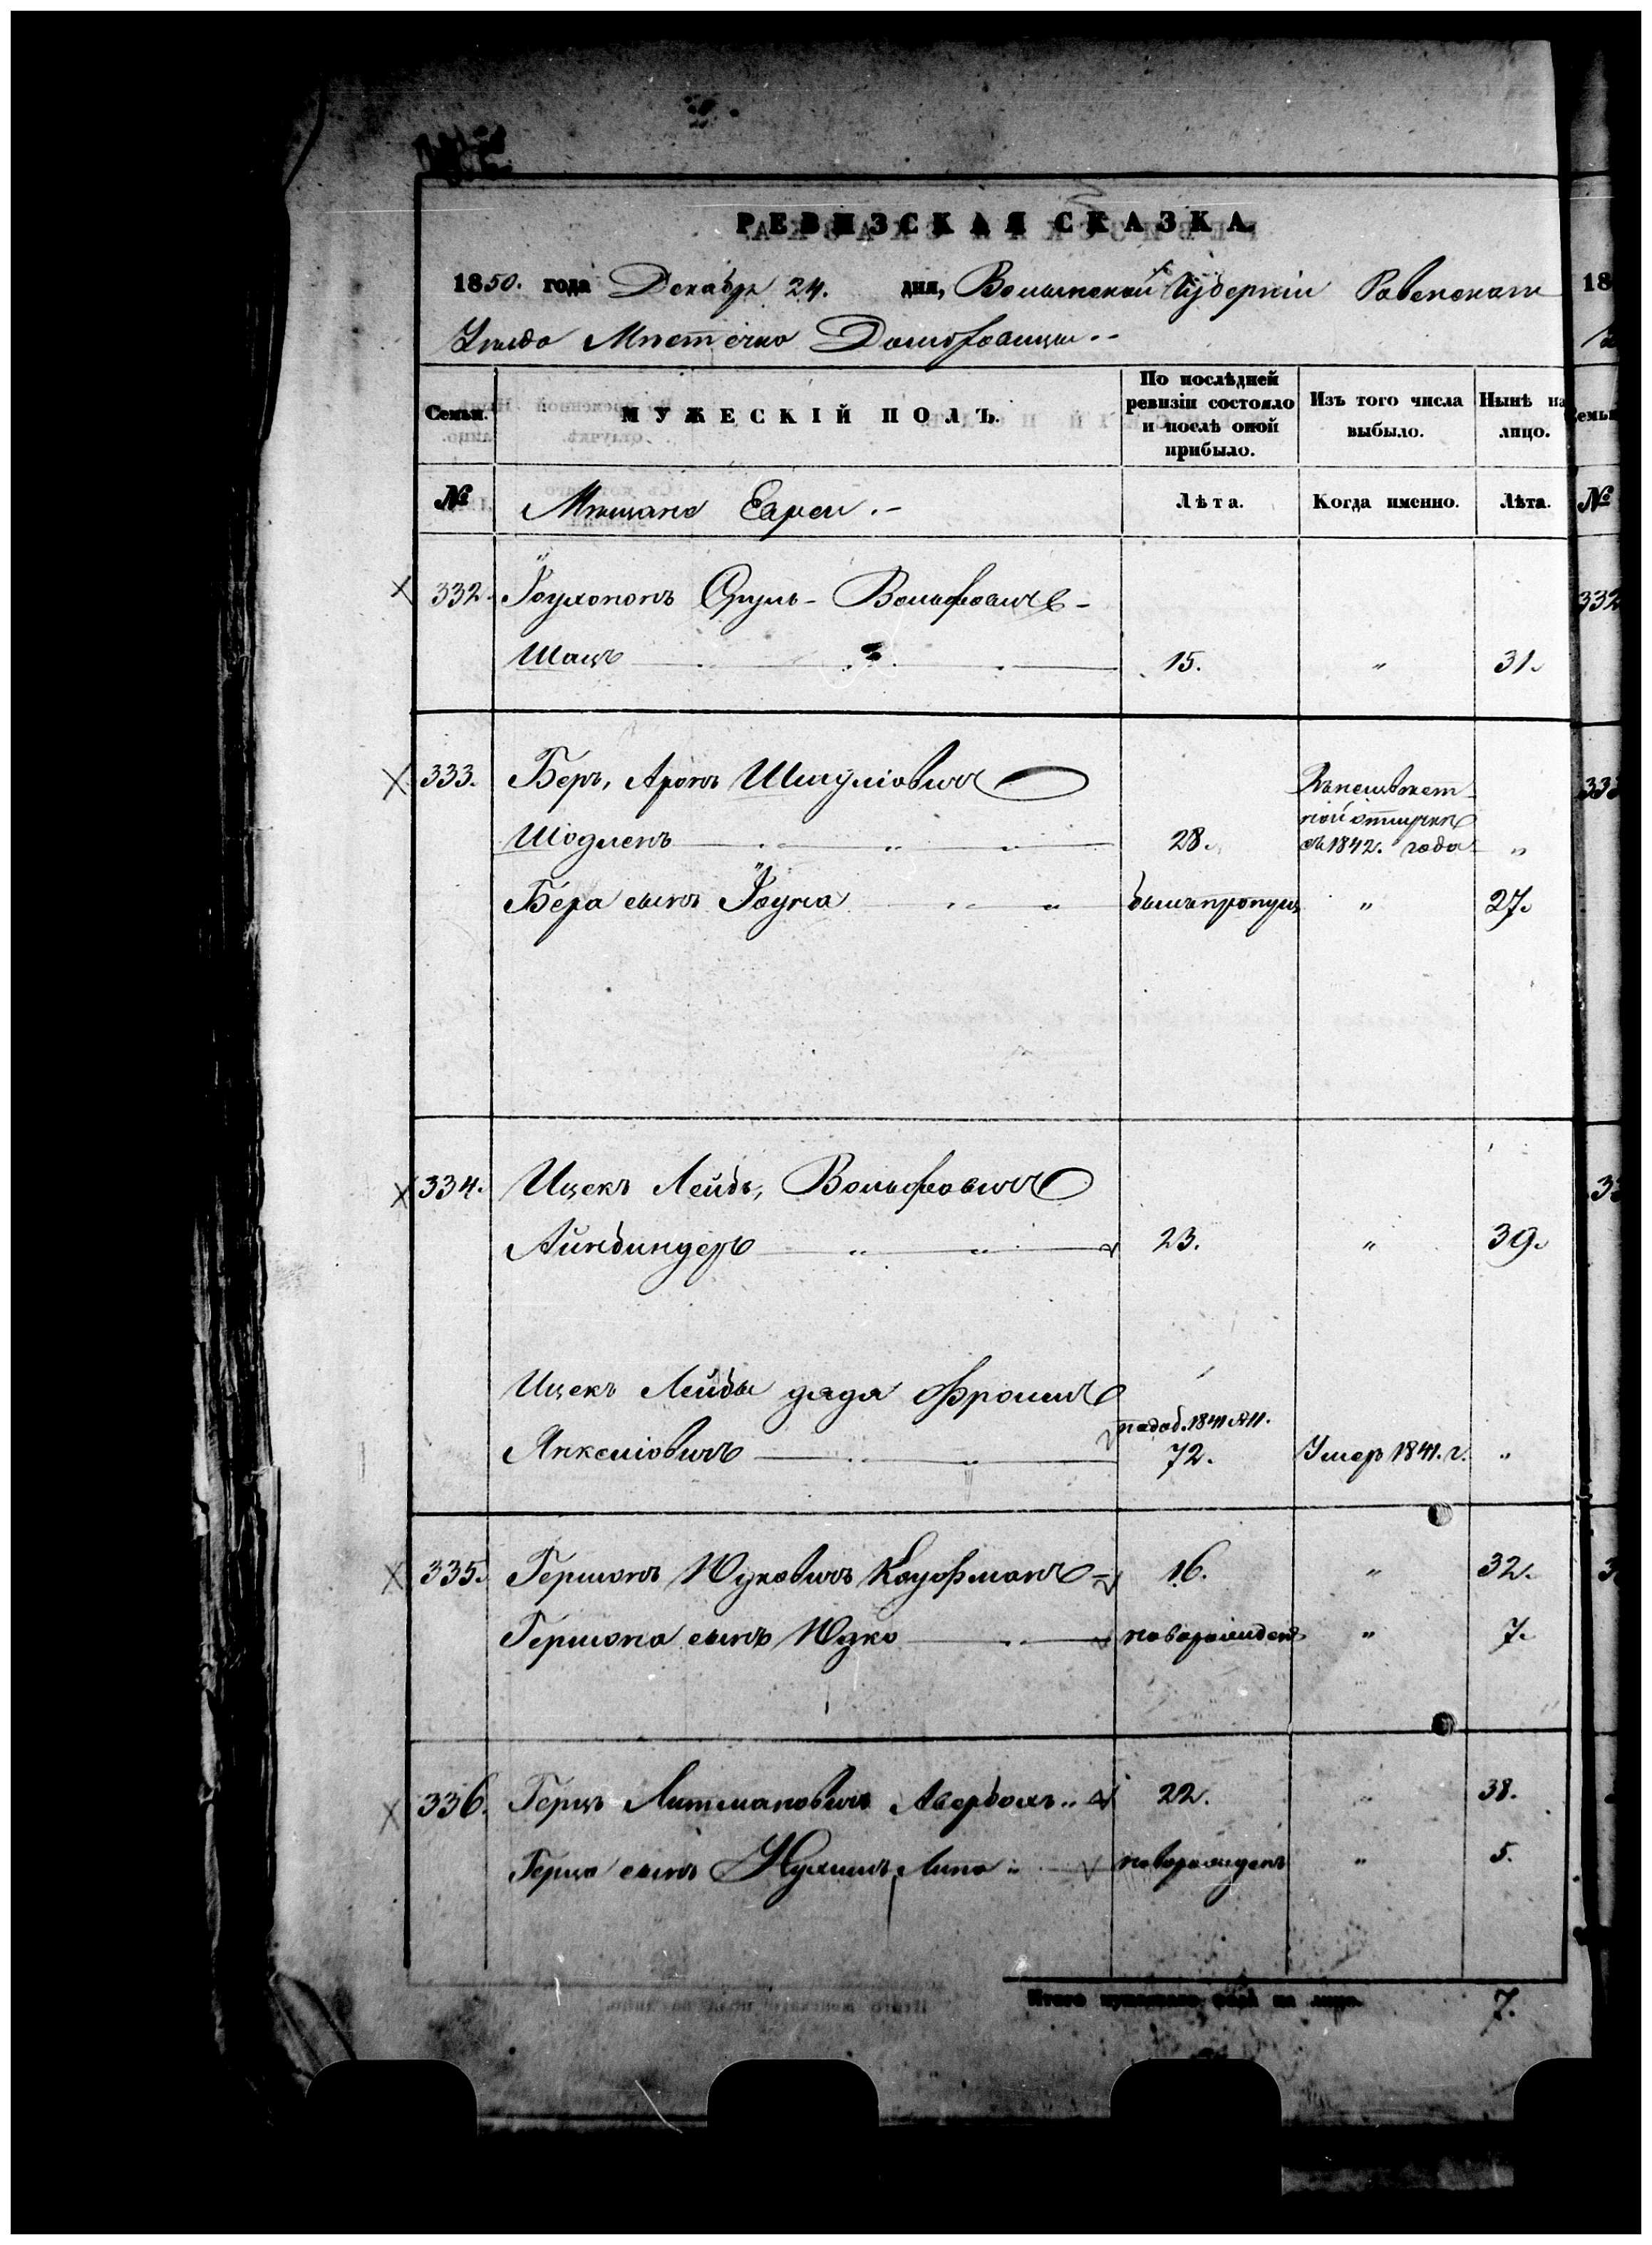 РЕВИЗСКАЯ СКАЗКА
1850. года Декабря 24. дня, Волынской Губерніи Ровенскаго
Уѣзда Мѣстечко Домбровица.-
Семьи. МУЖЕСКІЙ ПОЛЪ. По послѣдней ревизіи состояло и послѣ оной прибыло. Изъ того числа выбыло. Нынѣ на лицо.
№ Мѣщане Евреи.- Лѣта. Когда именно. Лѣта. №
332. Срулъ- Вольфовичъ-
Шацъ 15. „ 31.
333. Беръ, Аронъ Шмуліовичъ
28. съ 1842. года „
Бера сынъ 27.
334. Ицекъ Лейбъ, Вольфовичъ
Айнбиндеръ 23. „ 39.
Ицекъ Лейбы дядя Фроимъ
Янкеліовичъ 72. Умеръ 1841. г. „
335. Гершонъ Юдковичъ Кауфманъ 16. „ 32.
Гершона сынъ Юдко новорожденъ „ 7.
336. Герцъ Литмановичъ Авербахъ 22. „ 38.
Герца сынъ новорожденъ „ 5.
Итого мужескаго пола на лицо 7.